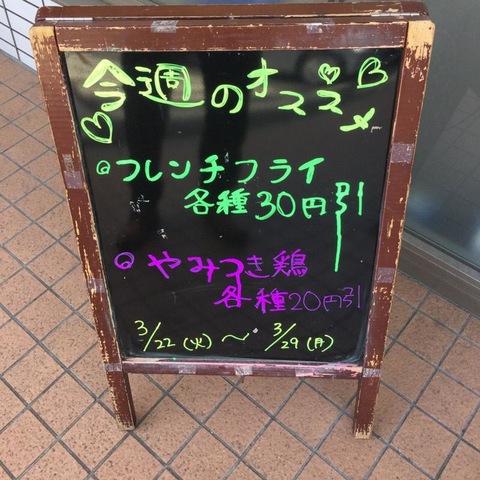 今週のオススメ
フレンチフライ
各種30円引
やみつき鶏
各種20円引
3/22(火)～3/29(月)